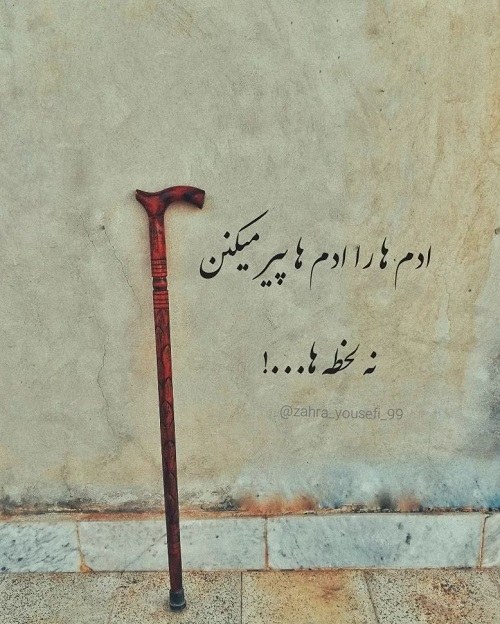 ادم ها را ادم ها پیر میکنن
نه لحظه ها...!
@zahra_yousefi_99